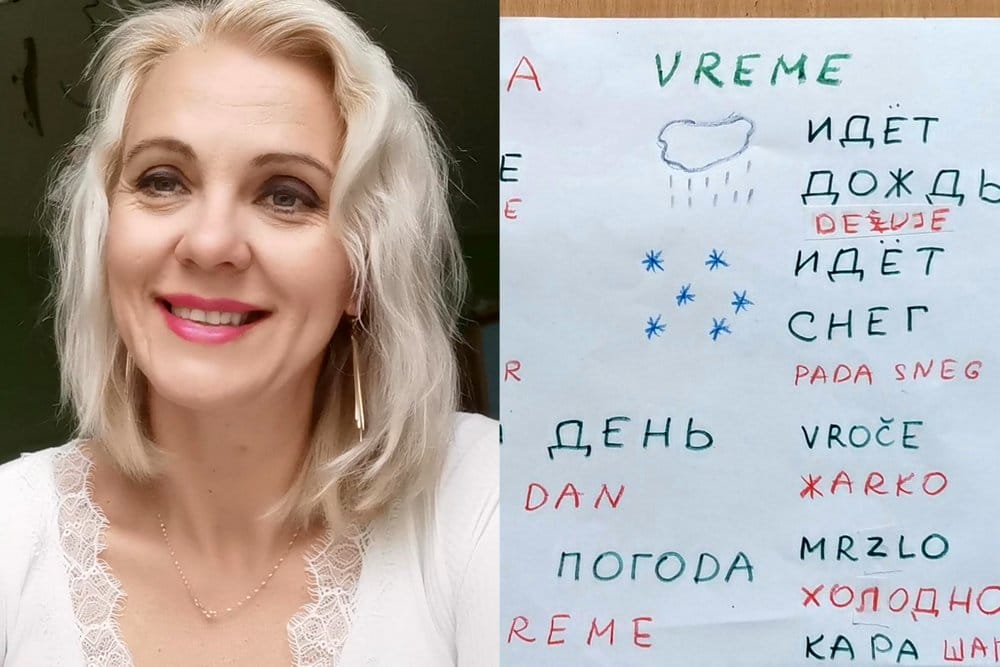 A
VREME
ИДЁТ
ДОЖДЬ
DEŽUJE
E
E
ИДЁТ
СНЕГ
R
PADA SNEG
ДЕНЬ
VROČE
DAN
ЖARKO
ПОГОДА
MRZLO
ХОЛОДНО
REME
КАРА ШАР